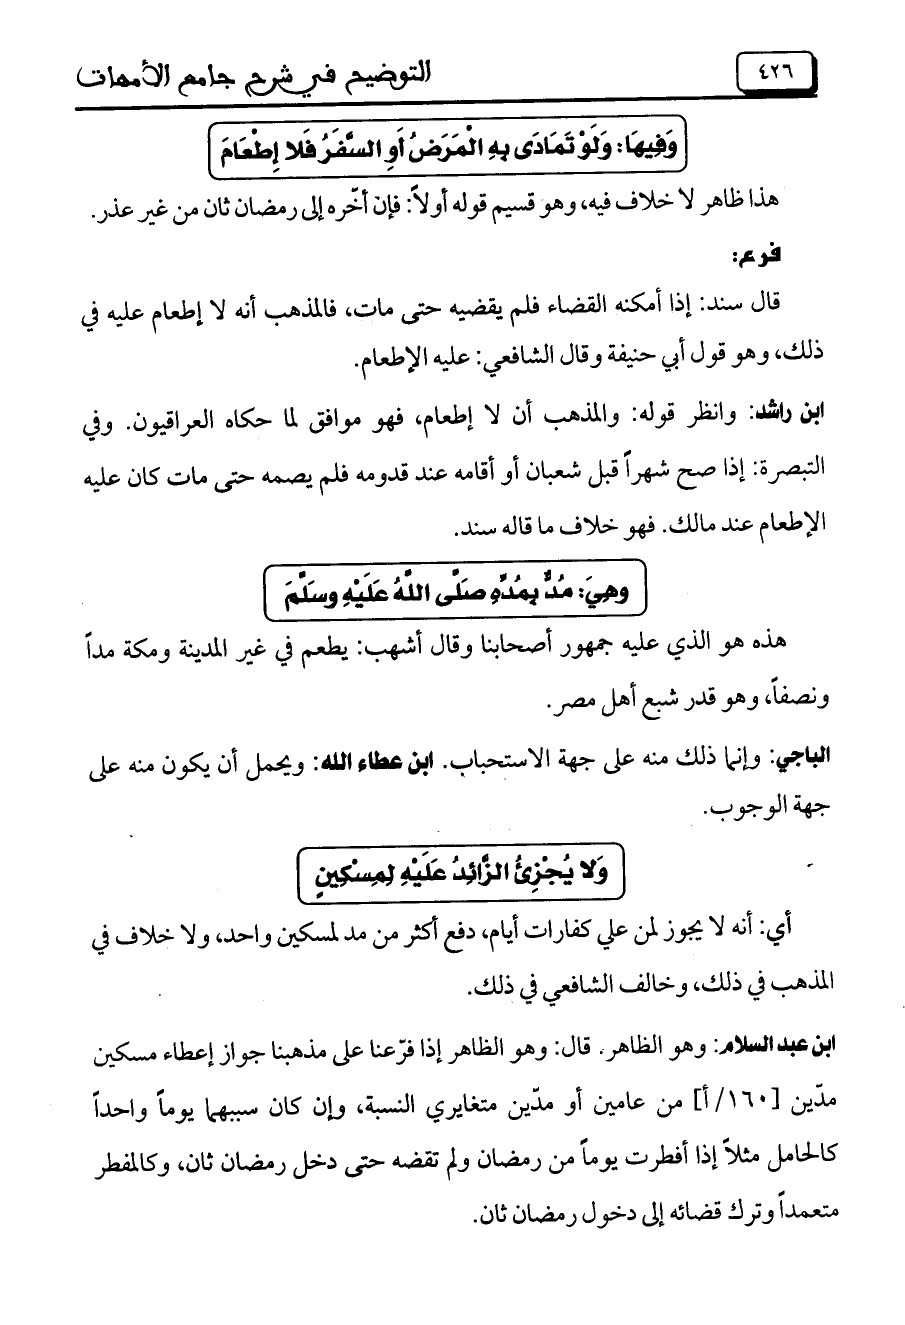 ٤٢٦
التوضيح في شرح جامع الأمهات
وَفِيهَا: وَلَوْ تَمَادَى بِهِ الْمَرَضُ أَوِ السَّفَرُ فَلا إِطْعَامَ
هذا ظاهر لا خلاف فيه، وهو قسيم قوله أولاً: فإن أخّره إلى رمضان ثان من غير عذر.
فرع:
قال سند: إذا أمكنه القضاء فلم يقضيه حتى مات، فالمذهب أنه لا إطعام عليه في
ذلك، وهو قول أبي حنيفة وقال الشافعي: عليه الإطعام.
ابن راشد: وانظر قوله: والمذهب أن لا إطعام، فهو موافق لما حكاه العراقيون. وفي
التبصرة: إذا صح شهراً قبل شعبان أو أقامه عند قدومه فلم يصمه حتى مات كان عليه
الإطعام عند مالك. فهو خلاف ما قاله سند.
وَهِيَ: مُدٌّ بِمُدِّهِ صَلَّى اللَّهُ عَلَيْهِ وسَلَّمَ
هذه هو الذي عليه جمهور أصحابنا وقال أشهب: يطعم في غير المدينة ومكة مداً
ونصفاً، وهو قدر شبع أهل مصر.
الباجي: وإنما ذلك منه على جهة الاستحباب. ابن عطاء الله: ويحمل أن يكون منه على
جهة الوجوب.
وَلا يُجْزِئُ الزَّائِدُ عَلَيْهِ لِمِسْكِينٍ
أي: أنه لا يجوز لمن علي كفارات أيام، دفع أكثر من مد لمسكين واحد، ولا خلاف في
المذهب في ذلك، وخالف الشافعي في ذلك.
ابن عبد السلام: وهو الظاهر. قال: وهو الظاهر إذا فرّعنا على مذهبنا جواز إعطاء مسكين
مدّين [١٦٠/أ] من عامين أو مدّين متغايري النسبة، وإن كان سببهما يوماً واحداً
كالحامل مثلاً إذا أفطرت يوماً من رمضان ولم تقضه حتى دخل رمضان ثان، وكالمفطر
متعمداً وترك قضائه إلى دخول رمضان ثان.